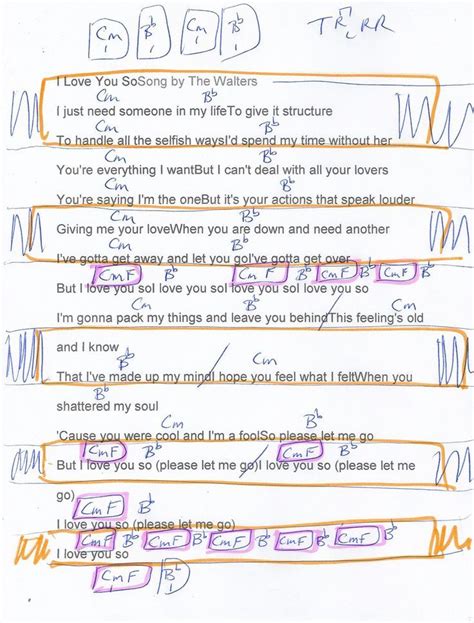 Cm B♭ Cm B♭ TR LRR
I Love You SoSong by The Walters
Cm B♭
I just need someone in my lifeTo give it structure
Cm B♭
To handle all the selfish waysI'd spend my time without her
Cm B♭
You're everything I wantBut I can't deal with all your lovers
Cm B♭
You're saying I'm the oneBut it's your actions that speak louder
Cm B♭
Giving me your loveWhen you are down and need another
Cm B♭
I've gotta get away and let you goI've gotta get over
CmF B♭ CmF B♭ CmF B♭ CmF B♭
But I love you soI love you soI love you soI love you so
Cm B♭ Cm
I'm gonna pack my things and leave you behindThis feeling's old
B♭
and I know
B♭ Cm
That I've made up my mindI hope you feel what I feltWhen you
B♭
shattered my soul
Cm B♭
'Cause you were cool and I'm a foolSo please let me go
CmF B♭ CmF B♭
But I love you so (please let me go)I love you so (please let me
go)
CmF B♭
I love you so (please let me go)
CmF B♭ CmF B♭ CmF B♭ CmF B♭ CmF B♭
I love you so
CmF B♭